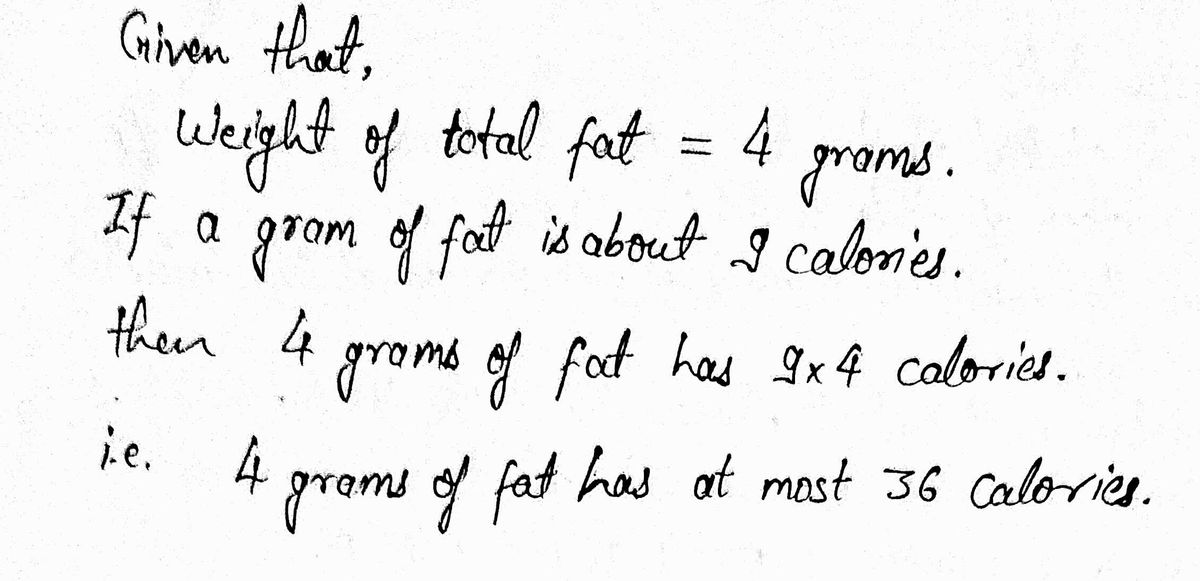 Given that,
Weight of total fat = 4 grams.
If a gram of fat is about 9 calories.
then 4 grams of fat has 9x4 calories.
i.e. 4 grams of fat has at most 36 Calories.